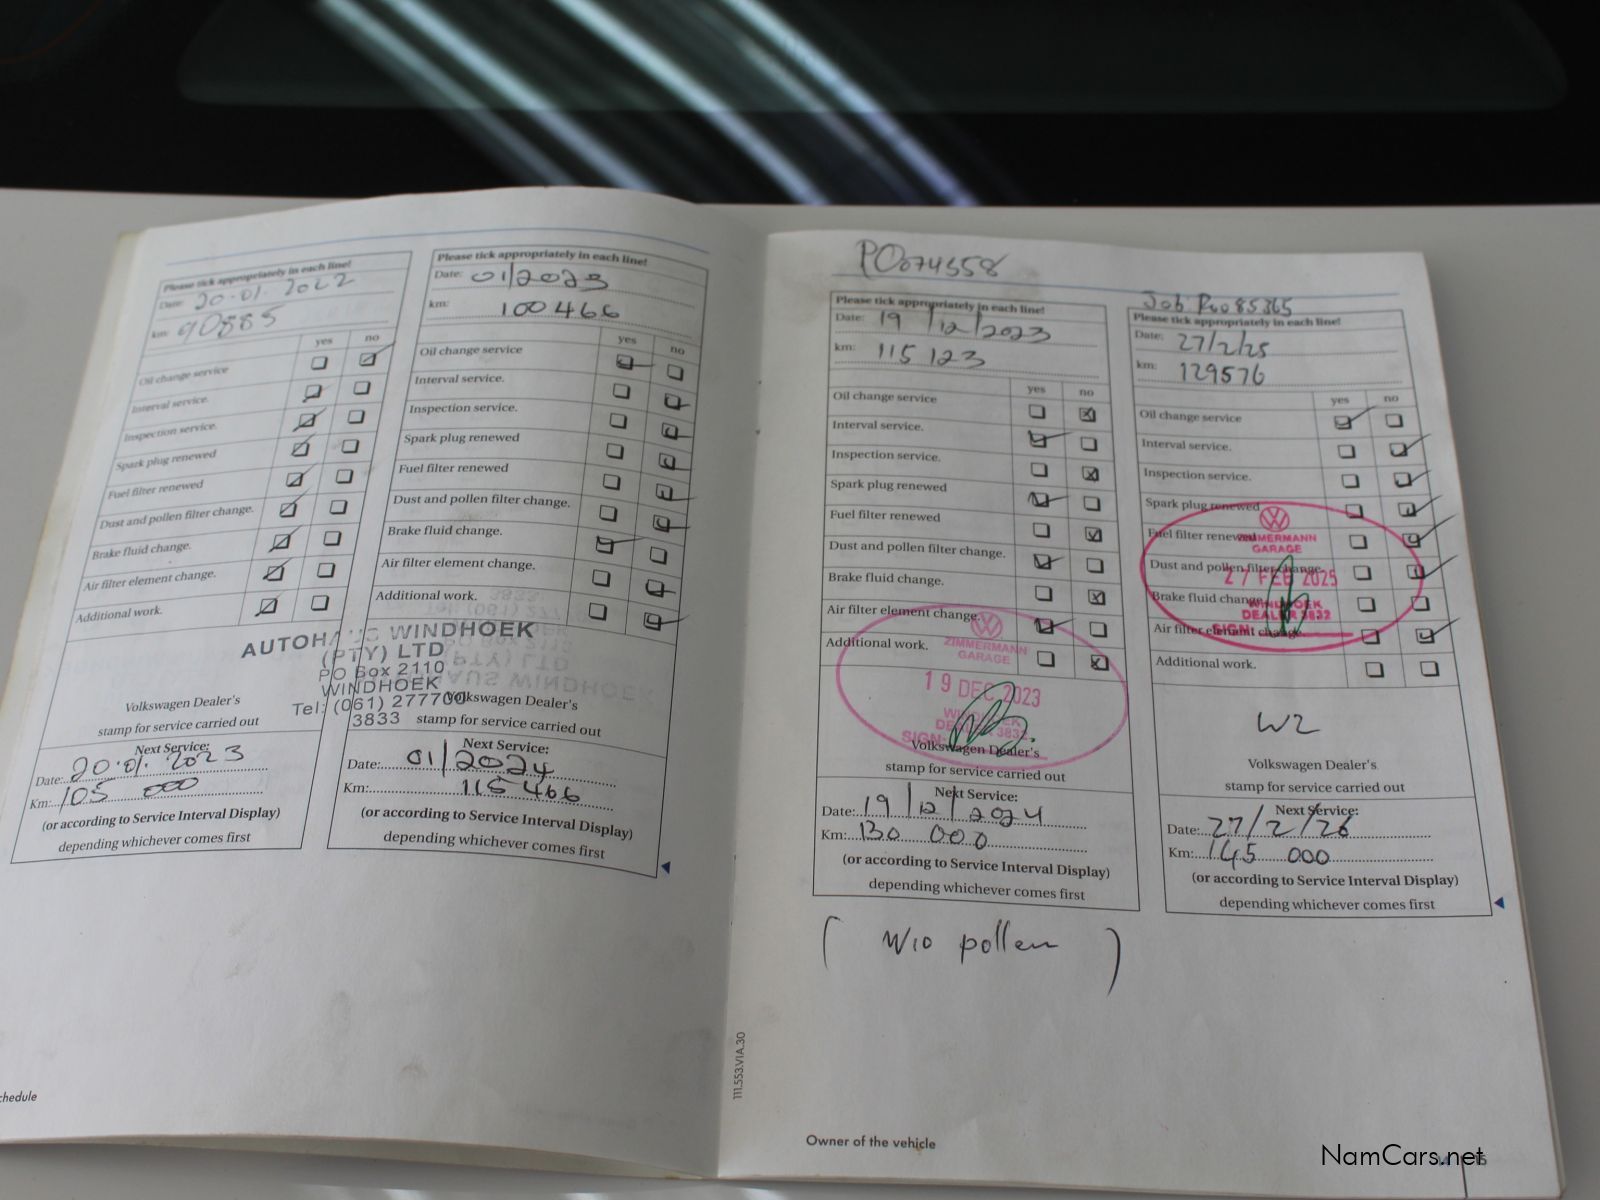 Please tick appropriately in each line!
Date: 20.01.2022
km: 90885
yes no
Oil change service
Interval service.
Inspection service.
Spark plug renewed
Fuel filter renewed
Dust and pollen filter change.
Brake fluid change.
Air filter element change.
Additional work.
AUTOHAUS WINDHOEK
(PTY) LTD
PO Box 2110
WINDHOEK
Tel: (061) 277700
3833
Volkswagen Dealer's
stamp for service carried out
Next Service:
Date: 20.01.2023
Km: 105 000
(or according to Service Interval Display)
depending whichever comes first
Please tick appropriately in each line!
Date: 01/2023
km: 100466
yes no
Oil change service
Interval service.
Inspection service.
Spark plug renewed
Fuel filter renewed
Dust and pollen filter change.
Brake fluid change.
Air filter element change.
Additional work.
Volkswagen Dealer's
stamp for service carried out
Next Service:
Date: 01/2024
Km: 115 466
(or according to Service Interval Display)
depending whichever comes first
chedule
111.553.VIA.30
PO074558
Please tick appropriately in each line!
Date: 19/12/2023
km: 115 123
yes no
Oil change service
Interval service.
Inspection service.
Spark plug renewed
Fuel filter renewed
Dust and pollen filter change.
Brake fluid change.
Air filter element change.
Additional work.
ZIMMERMANN
GARAGE
19 DEC 2023
WINDHOEK
DEALER 3832
SIGN:
Volkswagen Dealer's
stamp for service carried out
Next Service:
Date: 19/12/2024
Km: 130 000
(or according to Service Interval Display)
depending whichever comes first
( W10 pollen )
Job Po085365
Please tick appropriately in each line!
Date: 27/2/25
km: 129576
yes no
Oil change service
Interval service.
Inspection service.
Spark plug renewed
Fuel filter renewed
Dust and pollen filter change.
Brake fluid change.
Air filter element change.
Additional work.
ZIMMERMANN
GARAGE
27 FEB 2025
WINDHOEK
DEALER 3832
SIGN:
W2
Volkswagen Dealer's
stamp for service carried out
Next Service:
Date: 27/2/26
Km: 145 000
(or according to Service Interval Display)
depending whichever comes first
Owner of the vehicle
NamCars.net
15